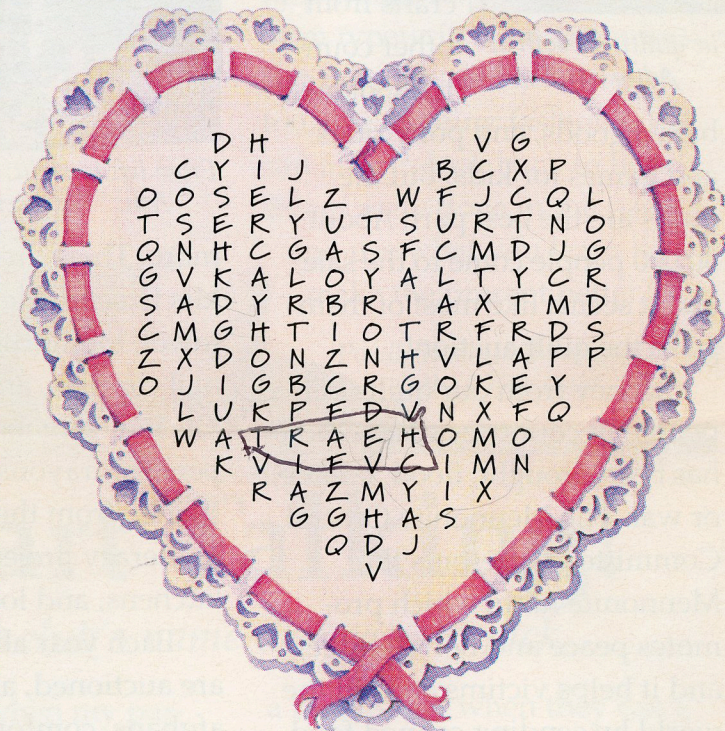 D H V G
C Y I J B C X P
O O S E L Z W F J C Q L
T S E R Y U T S U R T N O
Q N H C G A S F C M D J G
G V K A L O Y A L T Y C R
S A D Y R B R I A X T M D
C M G H T I O T R F R D S
Z X D O N Z N H V L A P P
O J I G B C R G O K E Y
L U K P F D V N X F Q
W A T R A E H O M O
K V I F V C I M N
R A Z M Y I X
G G H A S
Q D J
V